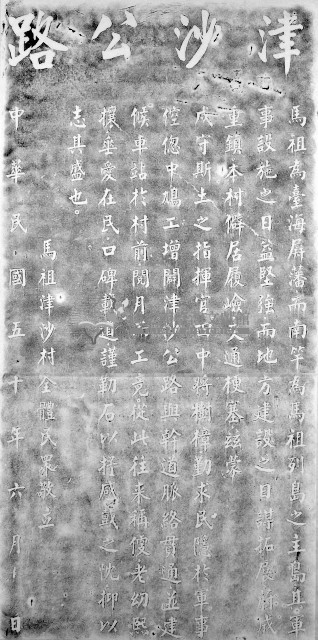 津沙公路
馬祖為臺海屏藩而南竿為馬祖列島之主島其軍
事設施之日益堅強而地方建設之日謀拓展儼成
重鎮本村僻居履嶮交通梗塞茲蒙
戍守斯土之指揮官田中將樹樟勤求民隱於軍事
倥傯中鳩工增闢津沙公路與幹道脈絡貫通並建
候車站於村前閱月而工竟從此往來稱便老幼熙
攘華愛在民口碑載道謹勒石以誌感戴之忱抑以
志其盛也。
馬祖津沙村全體民眾敬立
中華民國五十年六月 日